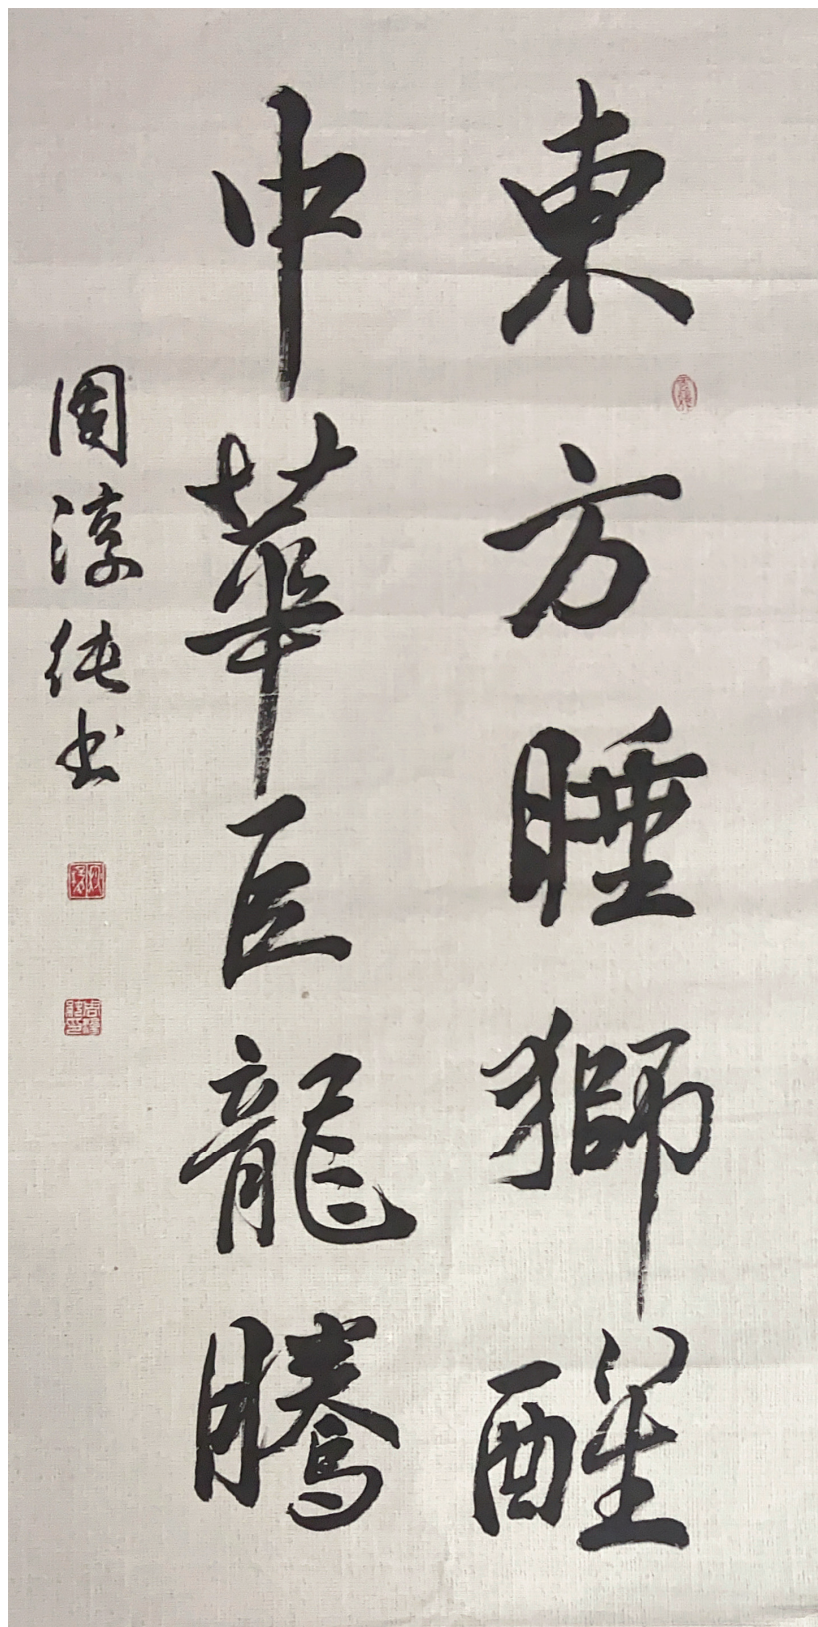 東方睡獅醒
中華巨龍騰
周淳純书